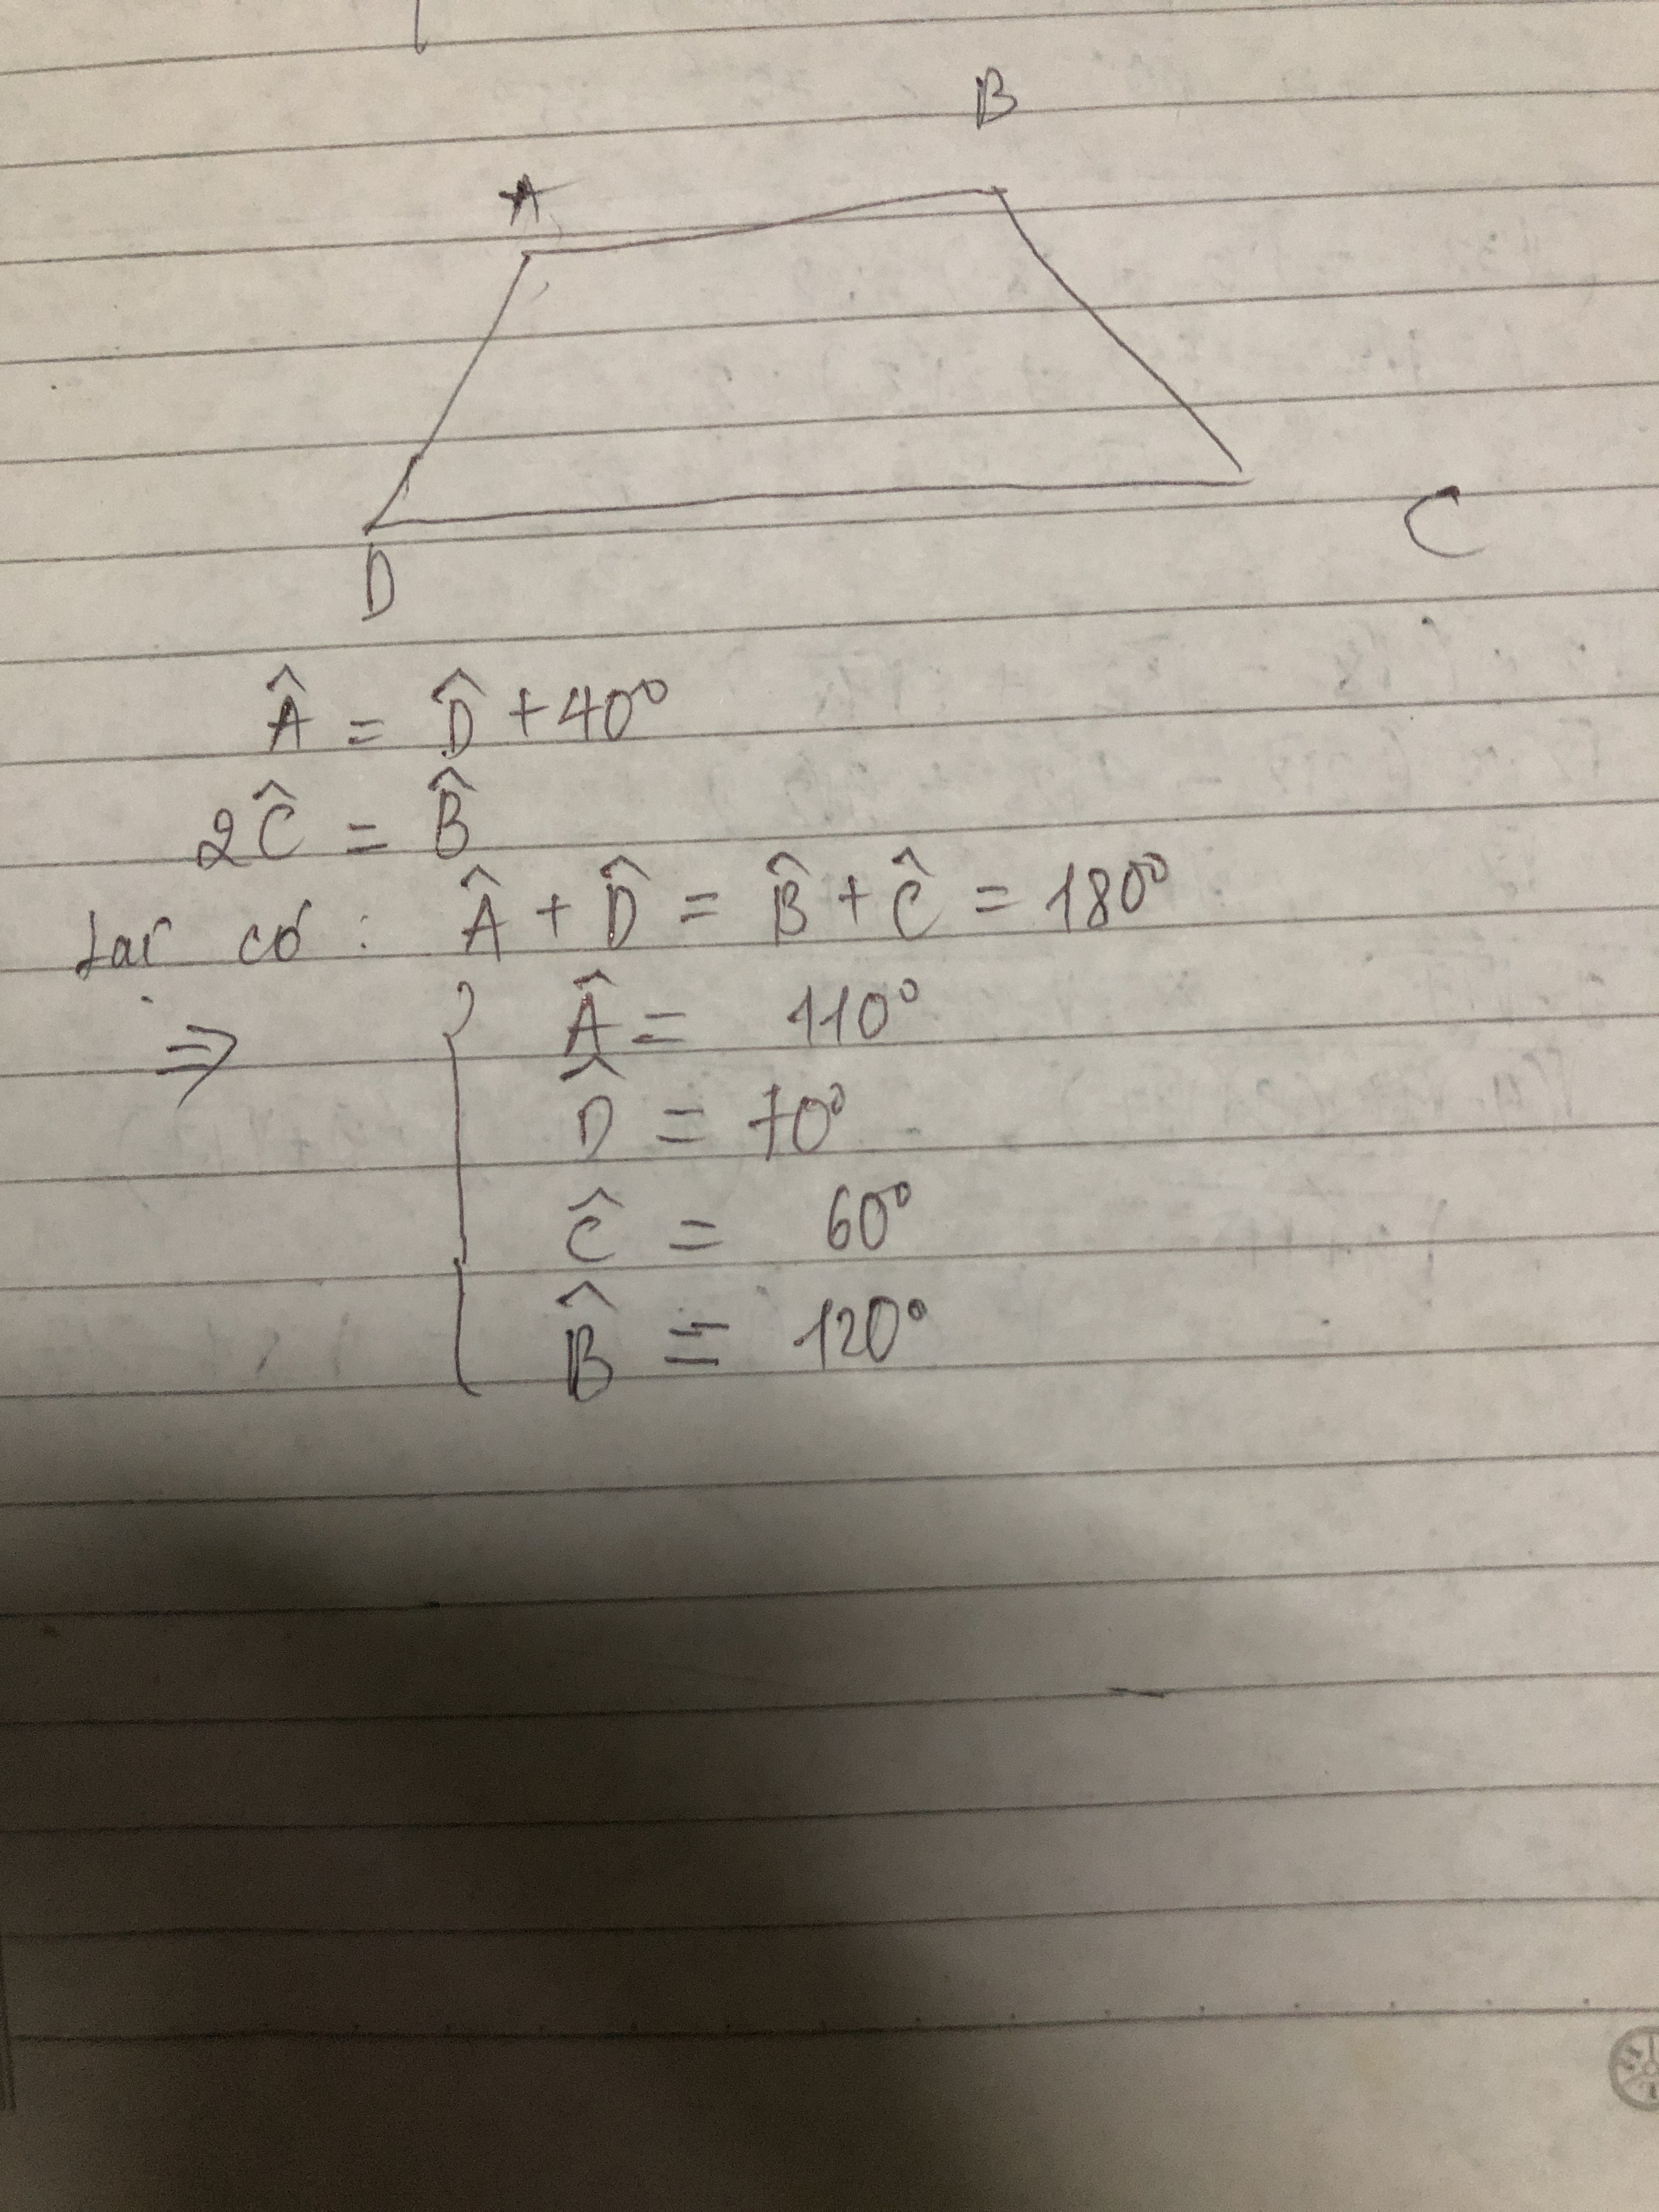 B
A
D
C
Â = D̂ + 40°
2Ĉ = B̂
Lại có : Â + D̂ = B̂ + Ĉ = 180°
⇒ { Â = 110°
D̂ = 70°
Ĉ = 60°
B̂ = 120°